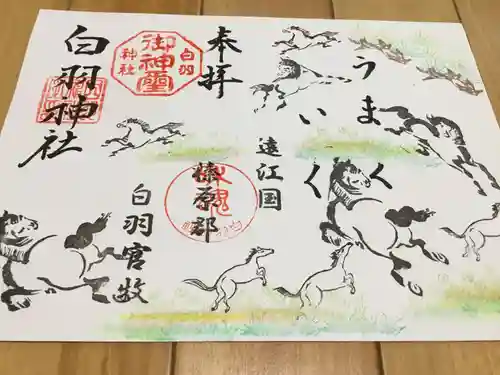 奉拝
うま
くいく
遠江国
榛原郡
白羽官牧
白羽神社
白羽
御神璽
神社